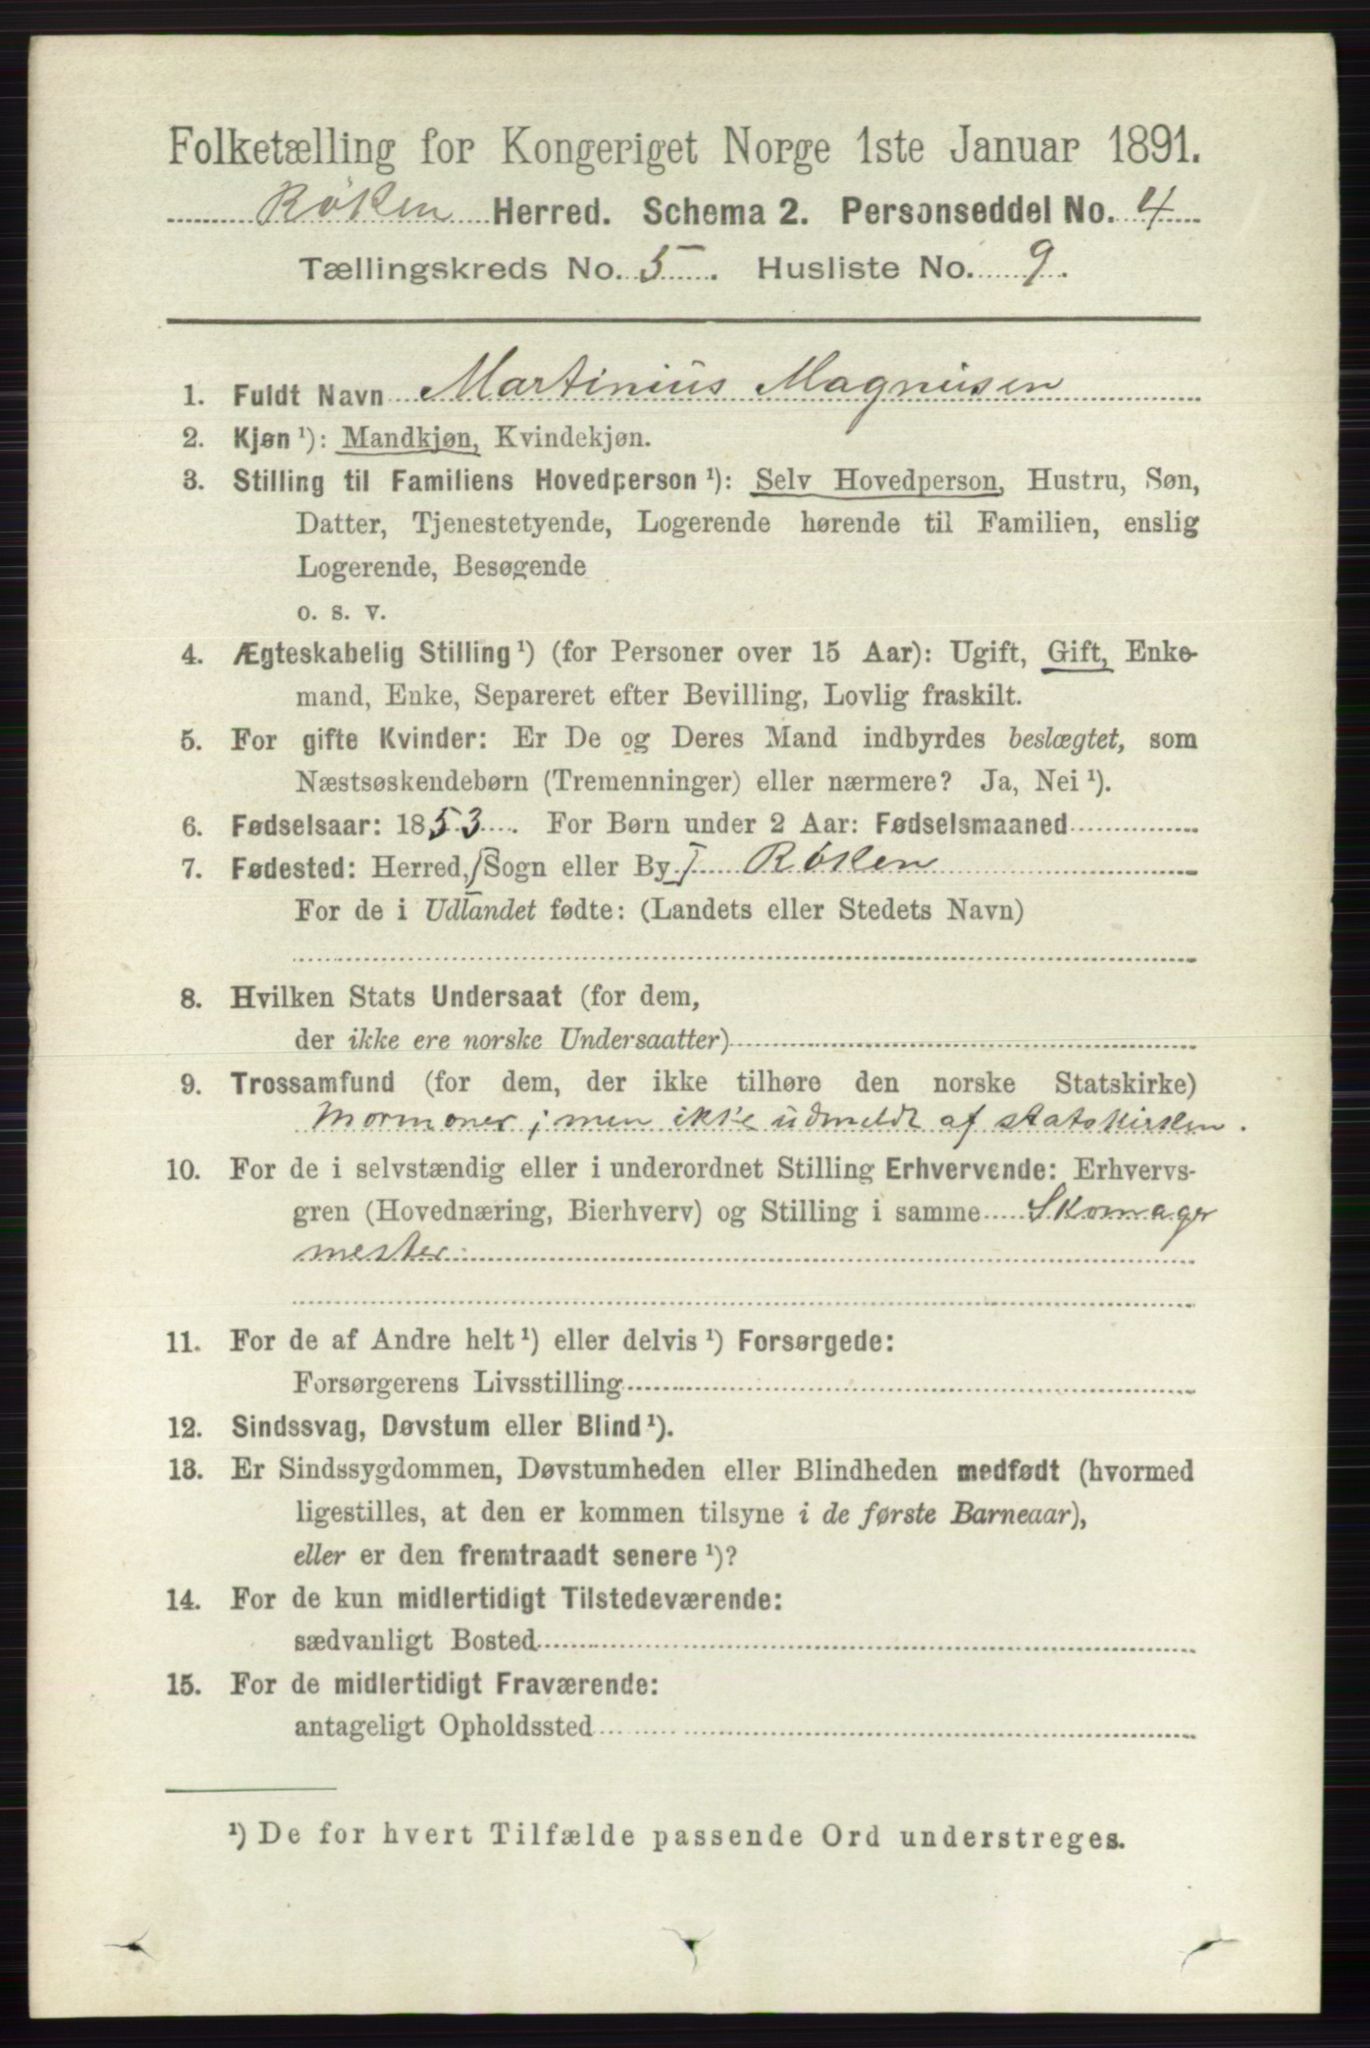 Folketælling for Kongeriget Norge 1ste Januar 1891.
Røken Herred. Schema 2. Personseddel No. 4
Tællingskreds No. 5. Husliste No. 9.
1. Fuldt Navn Martinius Magnusen
2. Kjøn ¹): Mandkjøn, Kvindekjøn.
3. Stilling til Familiens Hovedperson ¹): Selv Hovedperson, Hustru, Søn,
Datter, Tjenestetyende, Logerende hørende til Familien, enslig
Logerende, Besøgende
o. s. v.
4. Ægteskabelig Stilling ¹) (for Personer over 15 Aar): Ugift, Gift, Enke-
mand, Enke, Separeret efter Bevilling, Lovlig fraskilt.
5. For gifte Kvinder: Er De og Deres Mand indbyrdes beslægtet, som
Næstsøskendebørn (Tremenninger) eller nærmere? Ja, Nei ¹).
6. Fødselsaar: 1853. For Børn under 2 Aar: Fødselsmaaned
7. Fødested: Herred, [Sogn eller By] Røken
For de i Udlandet fødte: (Landets eller Stedets Navn)
8. Hvilken Stats Undersaat (for dem,
der ikke ere norske Undersaatter)
9. Trossamfund (for dem, der ikke tilhøre den norske Statskirke)
Mormoner; men ikke udmeldt af statskirken.
10. For de i selvstændig eller i underordnet Stilling Erhvervende: Erhvervs-
gren (Hovednæring, Bierhverv) og Stilling i samme Skomager
mester.
11. For de af Andre helt ¹) eller delvis ¹) Forsørgede:
Forsørgerens Livsstilling
12. Sindssvag, Døvstum eller Blind ¹).
13. Er Sindssygdommen, Døvstumheden eller Blindheden medfødt (hvormed
ligestilles, at den er kommen tilsyne i de første Barneaar),
eller er den fremtraadt senere ¹)?
14. For de kun midlertidigt Tilstedeværende:
sædvanligt Bosted
15. For de midlertidigt Fraværende:
antageligt Opholdssted
¹) De for hvert Tilfælde passende Ord understreges.